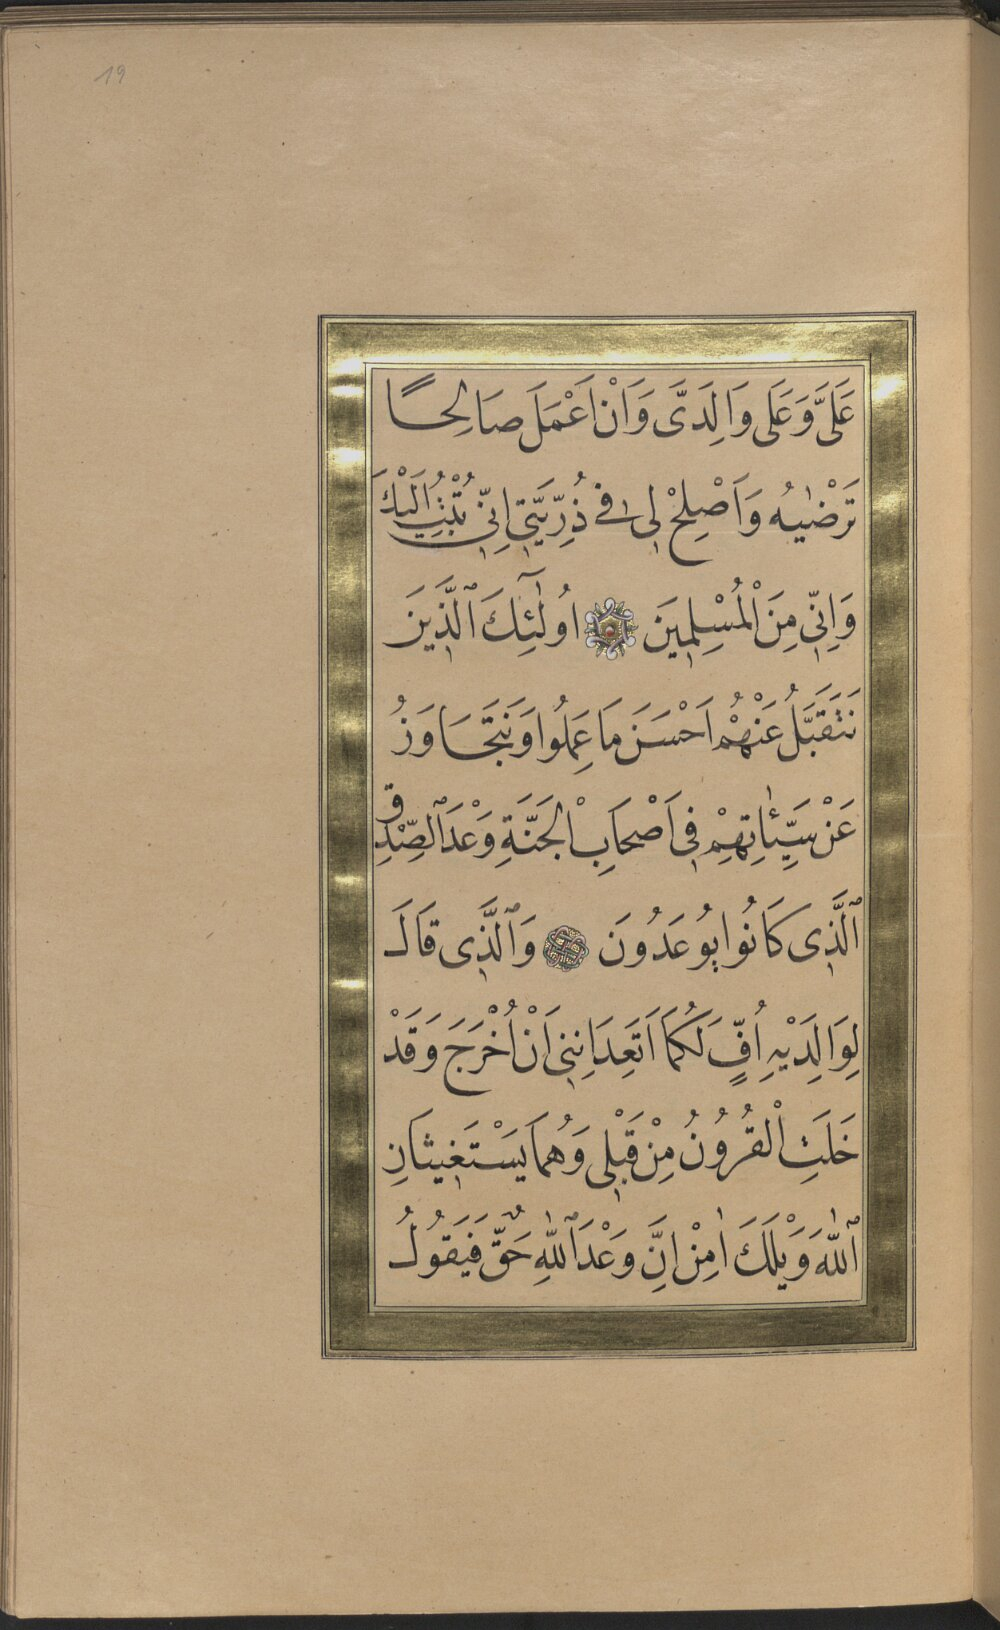 19
عَلَىَّ وَعَلٰى وَالِدَىَّ وَاَنْ اَعْمَلَ صَالِحًا
تَرْضٰيهُ وَاَصْلِحْ لٖى فٖى ذُرِّيَّتٖى اِنّٖى تُبْتُ اِلَيْكَ
وَاِنّٖى مِنَ الْمُسْلِمٖينَ اُولٰٓئِكَ ٱلَّذٖينَ
نَتَقَبَّلُ عَنْهُمْ اَحْسَنَ مَا عَمِلُوا وَنَتَجَاوَزُ
عَنْ سَيِّـَٔاتِهِمْ فٖى اَصْحَابِ الْجَنَّةِ وَعْدَ ٱلصِّدْقِ
ٱلَّذٖى كَانُوا يُوعَدُونَ وَٱلَّذٖى قَالَ
لِوَالِدَيْهِ اُفٍّ لَكُمَا اَتَعِدَانِنٖى اَنْ اُخْرَجَ وَقَدْ
خَلَتِ الْقُرُونُ مِنْ قَبْلٖى وَهُمَا يَسْتَغٖيثَانِ
ٱللّٰهَ وَيْلَكَ اٰمِنْ اِنَّ وَعْدَ ٱللّٰهِ حَقٌّ فَيَقُولُ